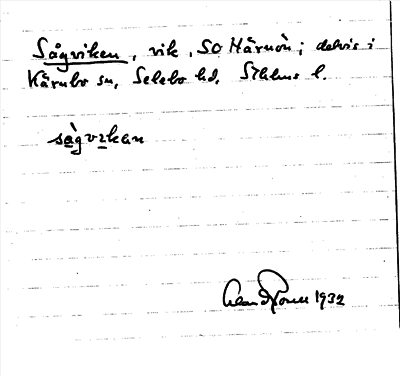 Sågviken, vik, SO Härnön; delvis i
Kärnbo sn, Selebo hd, Sthlms l.
sågvikan
1932